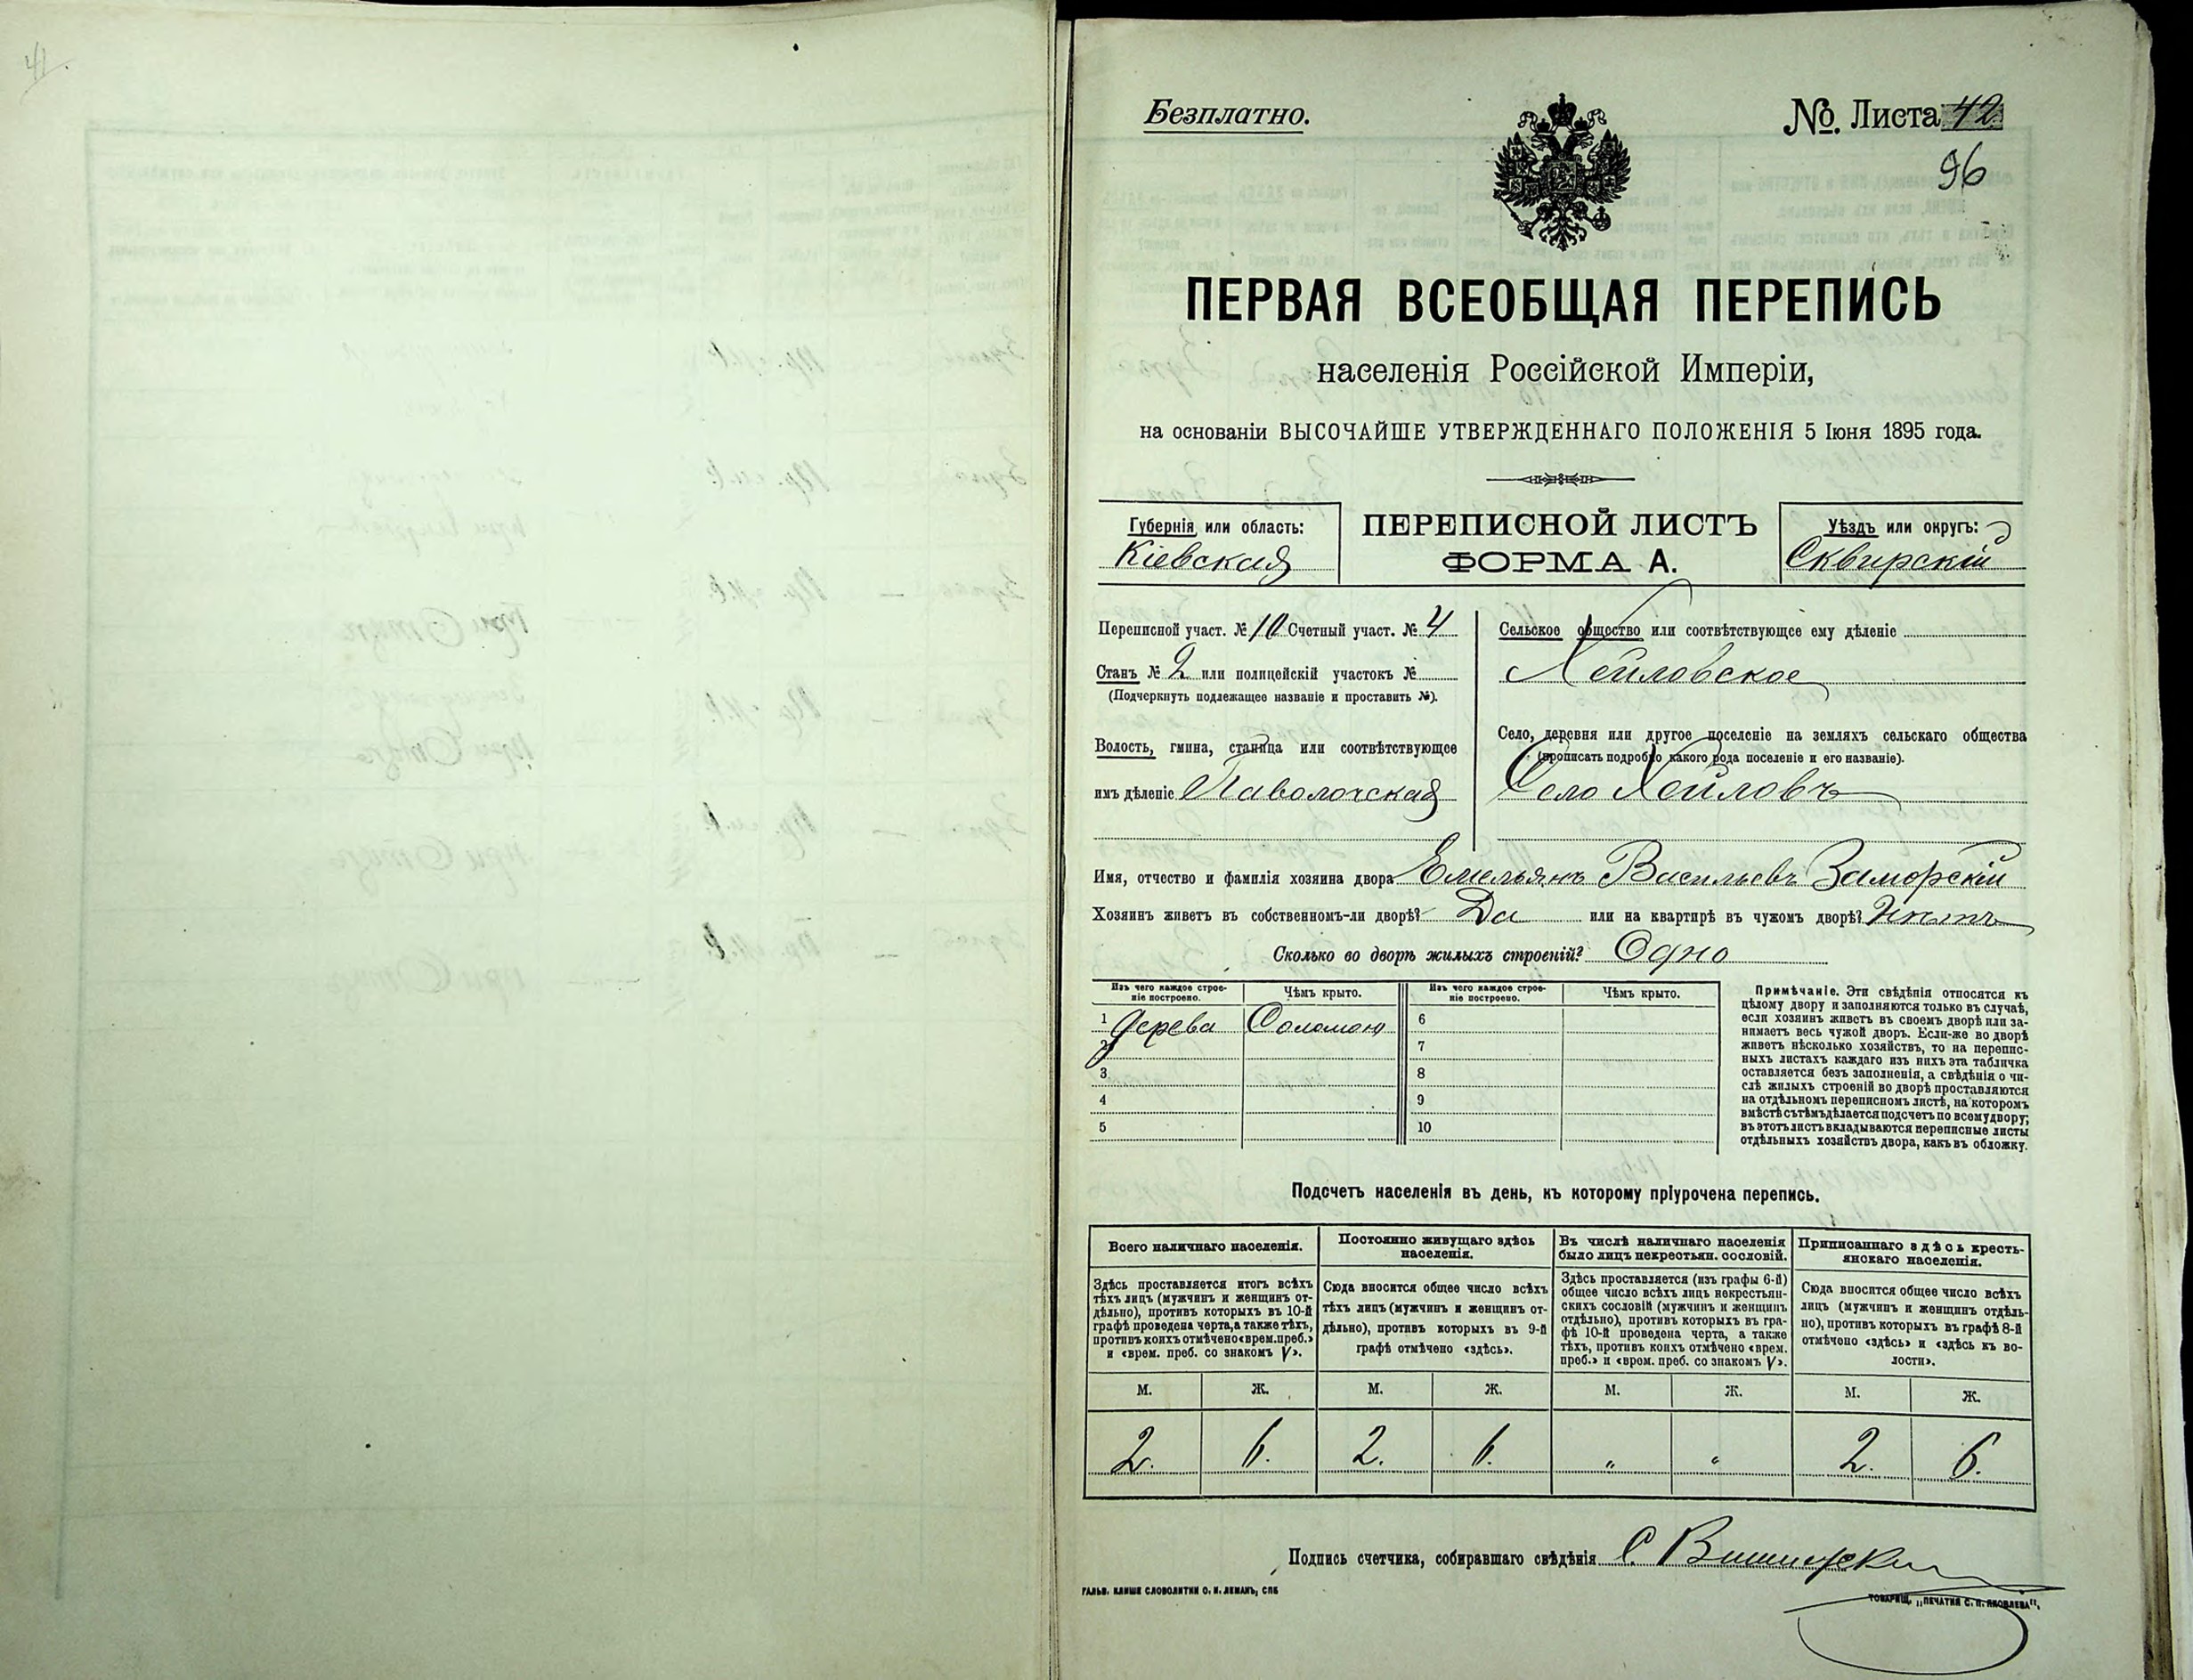 41.
Безплатно.
№. Листа 42
96
ПЕРВАЯ ВСЕОБЩАЯ ПЕРЕПИСЬ
населенія Россійской Имперіи,
на основаніи ВЫСОЧАЙШЕ УТВЕРЖДЕННАГО ПОЛОЖЕНІЯ 5 Іюня 1895 года.
Губернія или область:
Кіевская
ПЕРЕПИСНОЙ ЛИСТЪ
ФОРМА А.
Уѣздъ или округъ:
Сквирскій
Переписной участ. № 10 Счетный участ. № 4
Станъ № 2 или полицейскій участокъ №
(Подчеркнуть подлежащее названіе и проставить №).
Волость, гмина, станица или соотвѣтствующее
имъ дѣленіе Паволочская
Сельское общество или соотвѣтствующее ему дѣленіе
Хейловское
Село, деревня или другое поселеніе на земляхъ сельскаго общества
(прописать подробно какого рода поселеніе и его названіе).
Село Хейловъ
Имя, отчество и фамилія хозяина двора Емельянъ Васильевъ Заморскій
Хозяинъ живетъ въ собственномъ-ли дворѣ? Да или на квартирѣ въ чужомъ дворѣ?
Сколько во дворѣ жилыхъ строеній? Одно
Изъ чего каждое строе-
ніе построено.
Чѣмъ крыто.
Изъ чего каждое строе-
ніе построено.
Чѣмъ крыто.
1 Дерева Соломою 6
2 7
3 8
4 9
5 10
Примѣчаніе. Эти свѣдѣнія относятся къ
цѣлому двору и заполняются только въ случаѣ,
если хозяинъ живетъ въ своемъ дворѣ или за-
нимаетъ весь чужой дворъ. Если-же во дворѣ
живетъ нѣсколько хозяйствъ, то на перепис-
ныхъ листахъ каждаго изъ нихъ эта табличка
оставляется безъ заполненія, а свѣдѣнія о чи-
слѣ жилыхъ строеній во дворѣ проставляются
на отдѣльномъ переписномъ листѣ, на которомъ
вмѣстѣ съ тѣмъ дѣлается подсчетъ по всему двору;
въ этотъ листъ вкладываются переписные листы
отдѣльныхъ хозяйствъ двора, какъ въ обложку.
Подсчетъ населенія въ день, къ которому пріурочена перепись.
Всего наличнаго населенія.
Здѣсь проставляется итогъ всѣхъ
тѣхъ лицъ (мужчинъ и женщинъ от-
дѣльно), противъ которыхъ въ 10-й
графѣ проведена черта, а также тѣхъ,
противъ коихъ отмѣчено «врем. преб.»
и «врем. преб. со знакомъ V».
Постоянно живущаго здѣсь
населенія.
Сюда вносится общее число всѣхъ
тѣхъ лицъ (мужчинъ и женщинъ от-
дѣльно), противъ которыхъ въ 9-й
графѣ отмѣчено «здѣсь».
Въ числѣ наличнаго населенія
было лицъ некрестьян. сословій.
Здѣсь проставляется (изъ графы 6-й)
общее число всѣхъ лицъ некрестьян-
скихъ сословій (мужчинъ и женщинъ
отдѣльно), противъ которыхъ въ гра-
фѣ 10-й проведена черта, а также
тѣхъ, противъ коихъ отмѣчено «врем.
преб.» и «врем. преб. со знакомъ V».
Приписаннаго здѣсь кресть-
янскаго населенія.
Сюда вносится общее число всѣхъ
лицъ (мужчинъ и женщинъ отдѣль-
но), противъ которыхъ въ графѣ 8-й
отмѣчено «здѣсь» и «здѣсь къ во-
лости».
М. Ж. М. Ж. М. Ж. М. Ж.
2. 6. 2. 6. " " 2. 6.
Подпись счетчика, собиравшаго свѣдѣнія С.
ГАЛЬВ. КЛИШЕ СЛОВОЛИТНИ О. И. ЛЕМАНЪ, СПБ
ТОВАРИЩ. „ПЕЧАТНЯ С. П. ЯКОВЛЕВА".